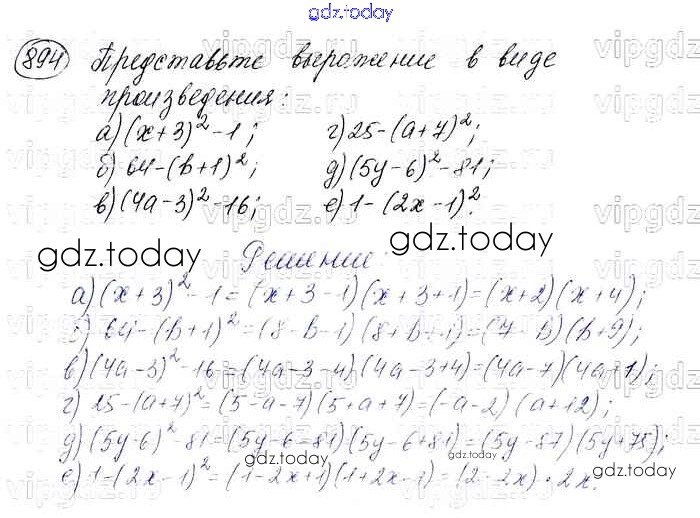 gdz.today
894 Представьте выражение в виде
произведения:
а) (x+3)² - 1; г) 25-(a+7)²;
б) 64-(b+1)²; д) (5y-6)² - 81;
в) (4a-3)² - 16; е) 1-(2x-1)².
gdz.today gdz.today
Решение:
а) (x+3)² - 1 = (x+3-1)(x+3+1) = (x+2)(x+4);
б) 64-(b+1)² = (8-b-1)(8+b+1) = (7-b)(b+9);
в) (4a-3)² - 16 = (4a-3-4)(4a-3+4) = (4a-7)(4a+1);
г) 25-(a+7)² = (5-a-7)(5+a+7) = (-a-2)(a+12);
д) (5y-6)² - 81 = (5y-6-81)(5y-6+81) = (5y-87)(5y+75);
gdz.today gdz.today
е) 1-(2x-1)² = (1-2x+1)(1+2x-1) = (2-2x)·2x.
gdz.today